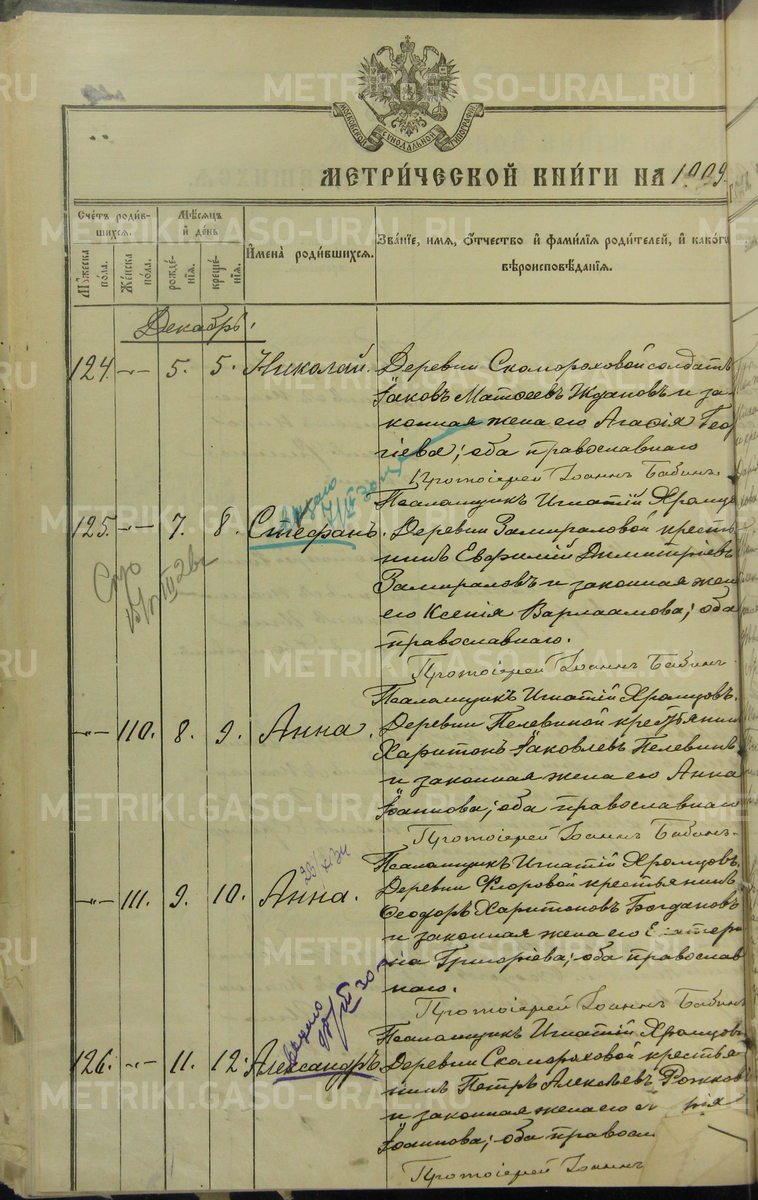 МОСКОВСКОЙ СѴНОДАЛЬНОЙ ТИПОГРАФІИ
МЕТРИ́ЧЕСКОЙ КНИ́ГИ НА 1909
Счетъ роди́в-
шихся.
Мѣсяцъ
и҆ день
Мужеска пола.
Женска пола.
рожде́нїя.
креще́нїя.
И҆мена̀ роди́вшихся.
Зва́нїе, имя, о҆́тчество и҆ фами́лїя роди́телей, и҆ како́гѡ
вѣроисповѣ́данїя.
Декабрь.
124. -„- 5. 5. Николай. Деревни Скомороховой солдатъ
Іаковъ Матѳеевъ Ждановъ и за-
конная жена его Агафія Геор
гіева; оба православнаго
Протоіерей Іоаннъ Бабинъ.
Псаломщикъ Игнатій Храмцов
125. -„- 7. 8. Стефанъ. Деревни Замираловой кресть
нинъ Евфимій Димитріевъ
Замираловъ и законная жен
его Ксенія Варлаамова; оба
православнаго.
Протоіерей Іоаннъ Бабинъ
Псаломщикъ Игнатій Храмцовъ.
-„- 110. 8. 9. Анна. Деревни Пелевиной крестьянин
Харитонъ Іаковлевъ Пелевинъ
и законная жена его Анна
Іоаннова; оба православнаго
Протоіерей Іоаннъ Бабинъ.
Псаломщикъ Игнатій Храмцовъ.
-„- 111. 9. 10. Анна. Деревни Фроровой крестьянинъ
Ѳеодоръ Харитоновъ Богдановъ
и законная жена его Е атери
на Григоріева; оба православ
наго.
Протоіерей Іоаннъ Бабинъ
Псаломщикъ Игнатій Храмцовъ
126. -„- 11. 12. Александръ. Деревни Скомороховой крестья-
нинъ Петръ Алексѣевъ Рожков
и законная жена его
Іоаннова; оба правосл
Протоіерей Іоаннъ
METRIKI.GASO-URAL.RU